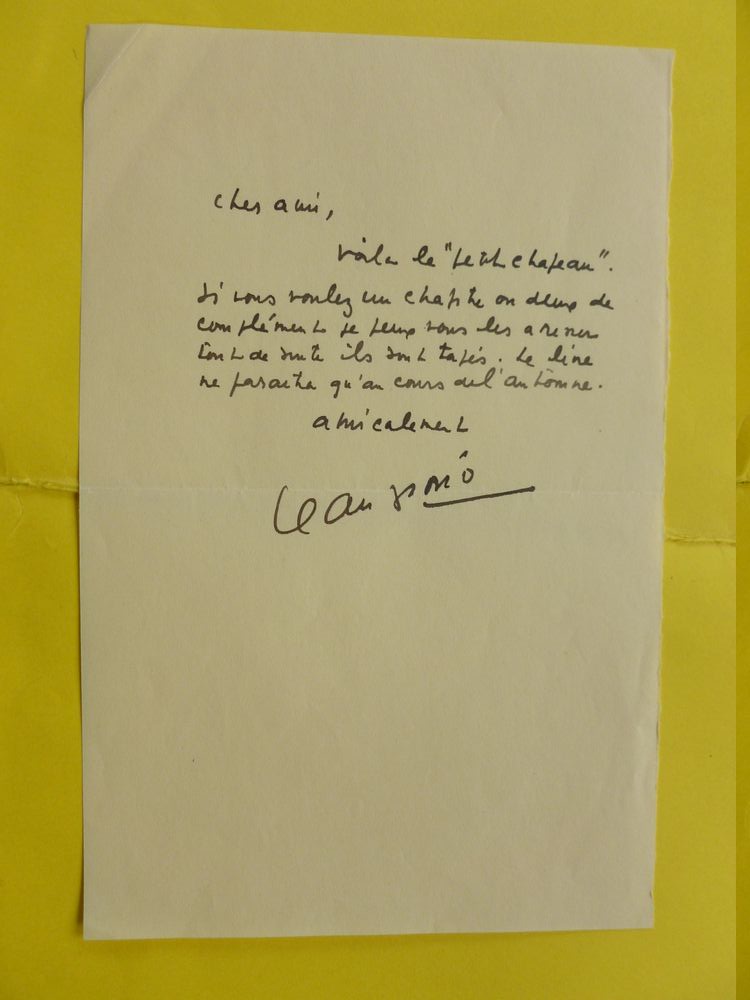 cher ami,
voila le "petit chapeau".
Si vous voulez un chapitre ou deux de
complément je peux vous les adresser
tout de suite ils sont tapés. Le livre
ne paraitra qu'au cours de l'automne.
amicalement
Jean Giono